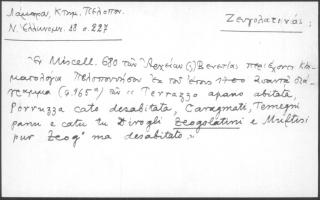 Λάμπρου, Κτημ. Πελοπον.
Ν. Ελληνομν. 18 σ. 227
Ζευγολατινάς:
Ἐν Miscell. 680 τῶν Ἀρχείων (;) Βενετίας περιέχεται
Πελοποννήσου ἐκ τοῦ ἔτους 1700
(φ. 165α) τῶν "Terrazzo apano abitata
Porruzza cato desabitata, Caravgnati, Temegni
panu e catu tu Divogli Zeogolatini e Muftisi
pur Zeog? ma desabitato".